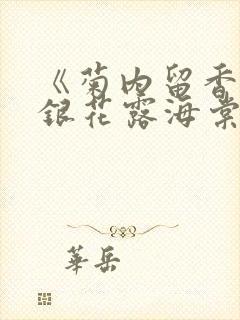 《菊内留香
銀花露海棠
華岳